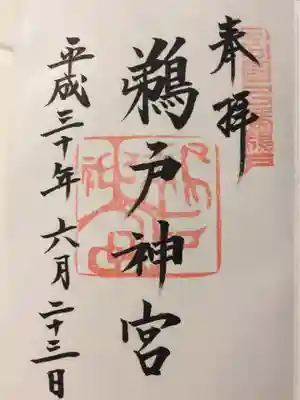 奉拝
鵜戸神宮
平成三十年六月二十三日